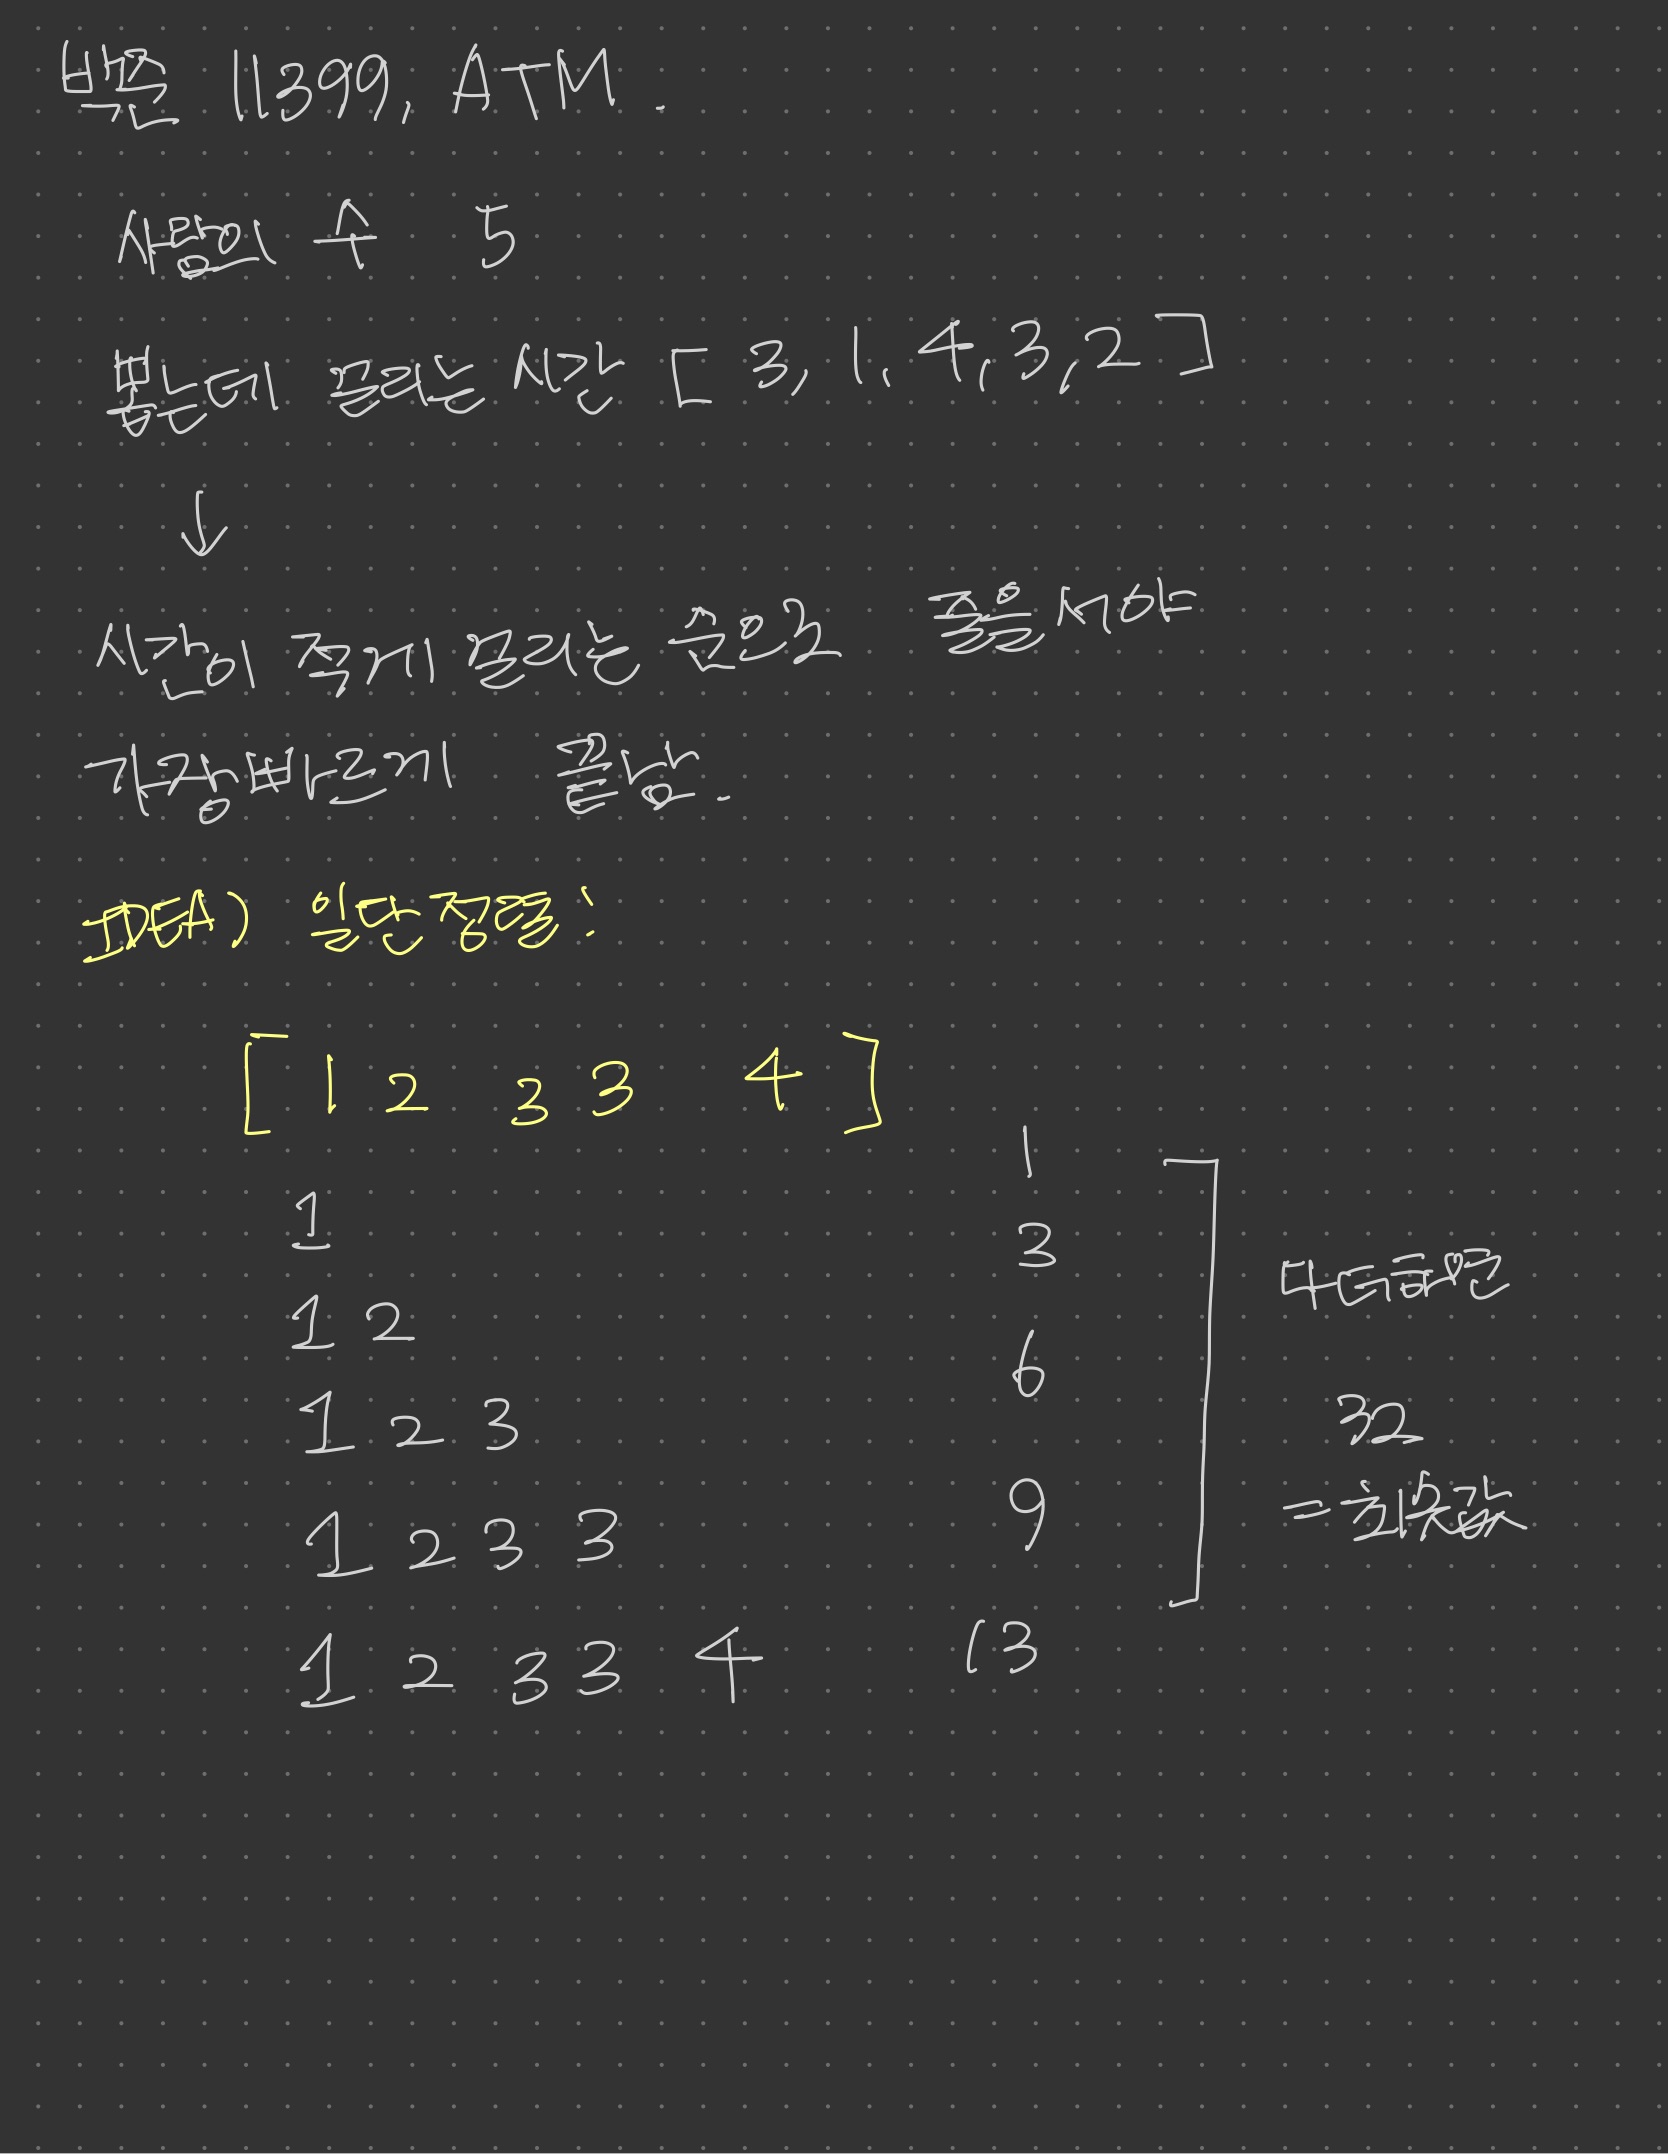 백준 11399, ATM.
사람의 수 5
뽑는데 걸리는 시간 [3, 1, 4, 3, 2]
↓
시간이 적게 걸리는 순으로 줄을 서야
가장 빠르게 끝남.
IDEA) 일단 정렬!
[1 2 3 3 4]
1 1
1 2 3
1 2 3 6
1 2 3 3 9
1 2 3 3 4 13
다 더하면
32
= 최솟값